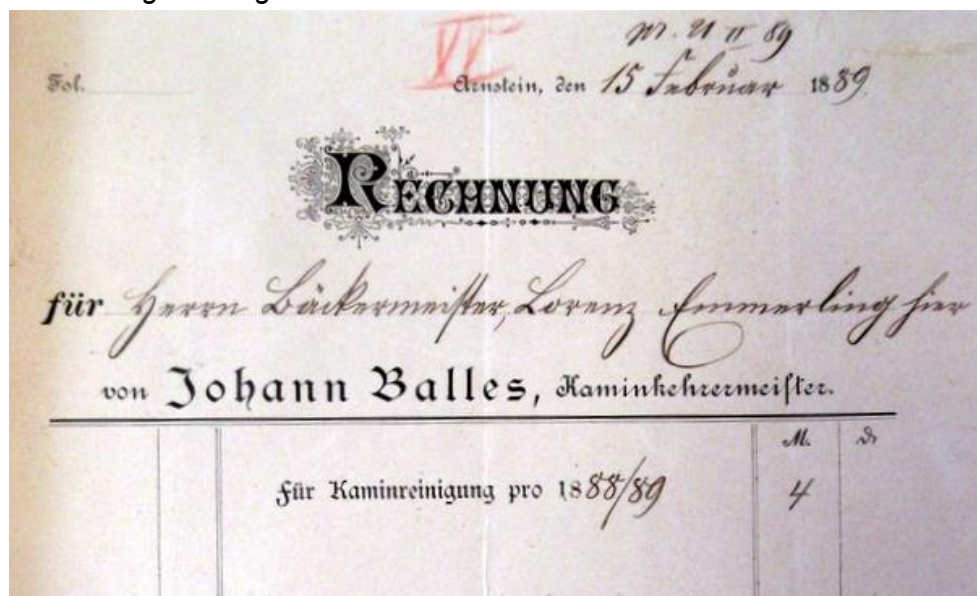 VI
Nr. 21 II 89
Fol. Arnstein, den 15 Februar 1889.
RECHNUNG
für Herrn Bäckermeister, Lorenz Emmerling hier
von Johann Balles, Kaminkehrermeister.
M. ₰
Für Kaminreinigung pro 1888/89 4